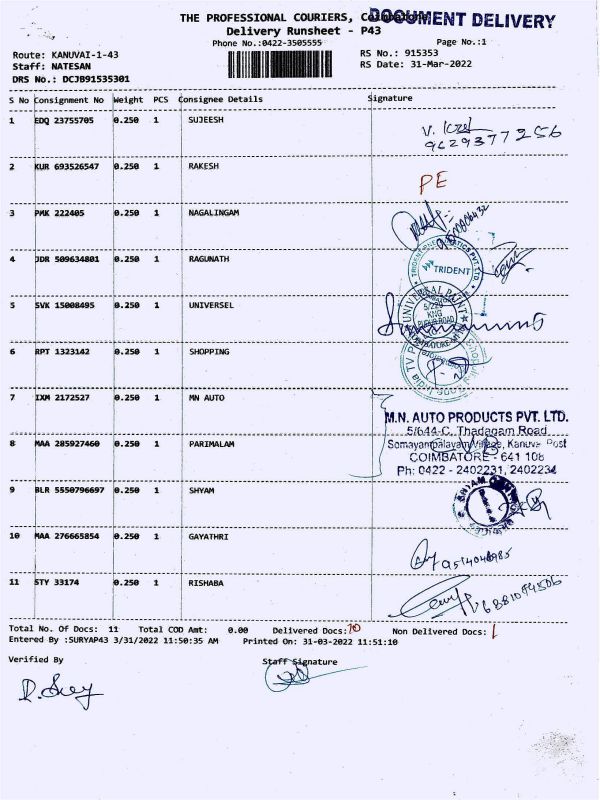 THE PROFESSIONAL COURIERS, Coimbatore
DOCUMENT DELIVERY
Delivery Runsheet - P43
Phone No.:0422-3505555
Page No.:1
Route: KANUVAI-1-43
RS No.: 915353
Staff: NATESAN
RS Date: 31-Mar-2022
DRS No.: DCJB91535301
S No Consignment No Weight PCS Consignee Details Signature
1 EDQ 23755705 0.250 1 SUJEESH
9629377256
2 KUR 693526547 0.250 1 RAKESH
PE
3 PMK 222405 0.250 1 NAGALINGAM
4 JDR 509634801 0.250 1 RAGUNATH
TRIDENT
5 SVK 15008495 0.250 1 UNIVERSEL
UNIVERSAL PRINT
5/229
KNG
PUDUR ROAD
6 RPT 1323142 0.250 1 SHOPPING
7 IXM 2172527 0.250 1 MN AUTO
M.N. AUTO PRODUCTS PVT. LTD.
5/644-C, Thadagam Road
8 MAA 285927460 0.250 1 PARIMALAM
Somayampalayam Village, Kanuvai Post
COIMBATORE - 641 108
Ph: 0422 - 2402231, 2402234
9 BLR 5550796697 0.250 1 SHYAM
SHYAM
10 MAA 276665854 0.250 1 GAYATHRI
11 STY 33174 0.250 1 RISHABA
Total No. Of Docs: 11 Total COD Amt: 0.00 Delivered Docs: 10 Non Delivered Docs: 1
Entered By :SURYAP43 3/31/2022 11:50:35 AM Printed On: 31-03-2022 11:51:10
Verified By Staff Signature